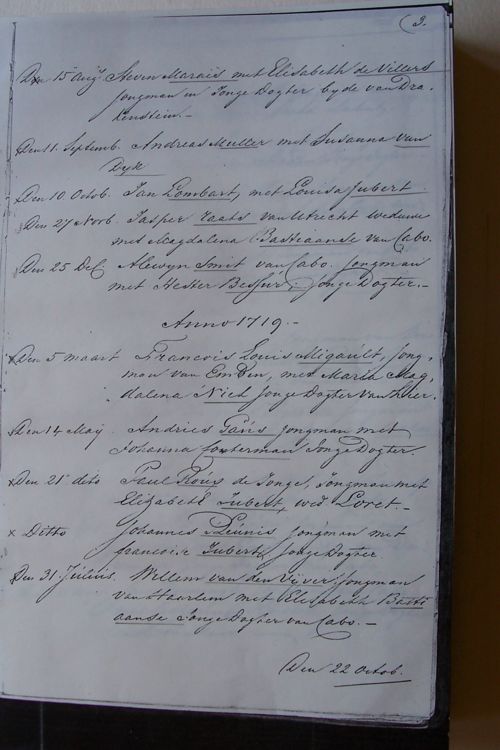 (3.
Den 15 Augs Steven Marais met Elisabeth de Villers
Jongman en Jonge Dogter byde van Dra-
kenstein.-
Den 11. Septemb. Andreas Muller met Susanna van
Dyk
Den 10 Octob. Jan Lombart, met Louisa Jubert.
Den 27 Novb. Jasper Raats van Utrecht weduwe
met Magdalena Bastiaanse van Cabo.
Den 25 Dec Alewyn Smit van Cabo. Jongman
met Hester Jonge Dogter.-
Anno 1719.-
Den 5 maart Francois Louis Migault, Jong-
man van Emden, met Maria Mag-
dalena Niel Jonge Dogter van
Den 14 Maÿ Andries Jongman met
Johanna Jonge Dogter.
Den 21e dito Paul Roux de Jonge, Jongman met
Elizabeth Jubert, wed Loret.-
Ditto Johannes Pleunis Jongman met
francoise Jubert, Jonge Dogter
Den 31 Julius. Willem van den Vijver, Jongman
van Haarlem met Elisabeth Basti
aanse Jonge Dogter van Cabo.-
Den 22 Octob.